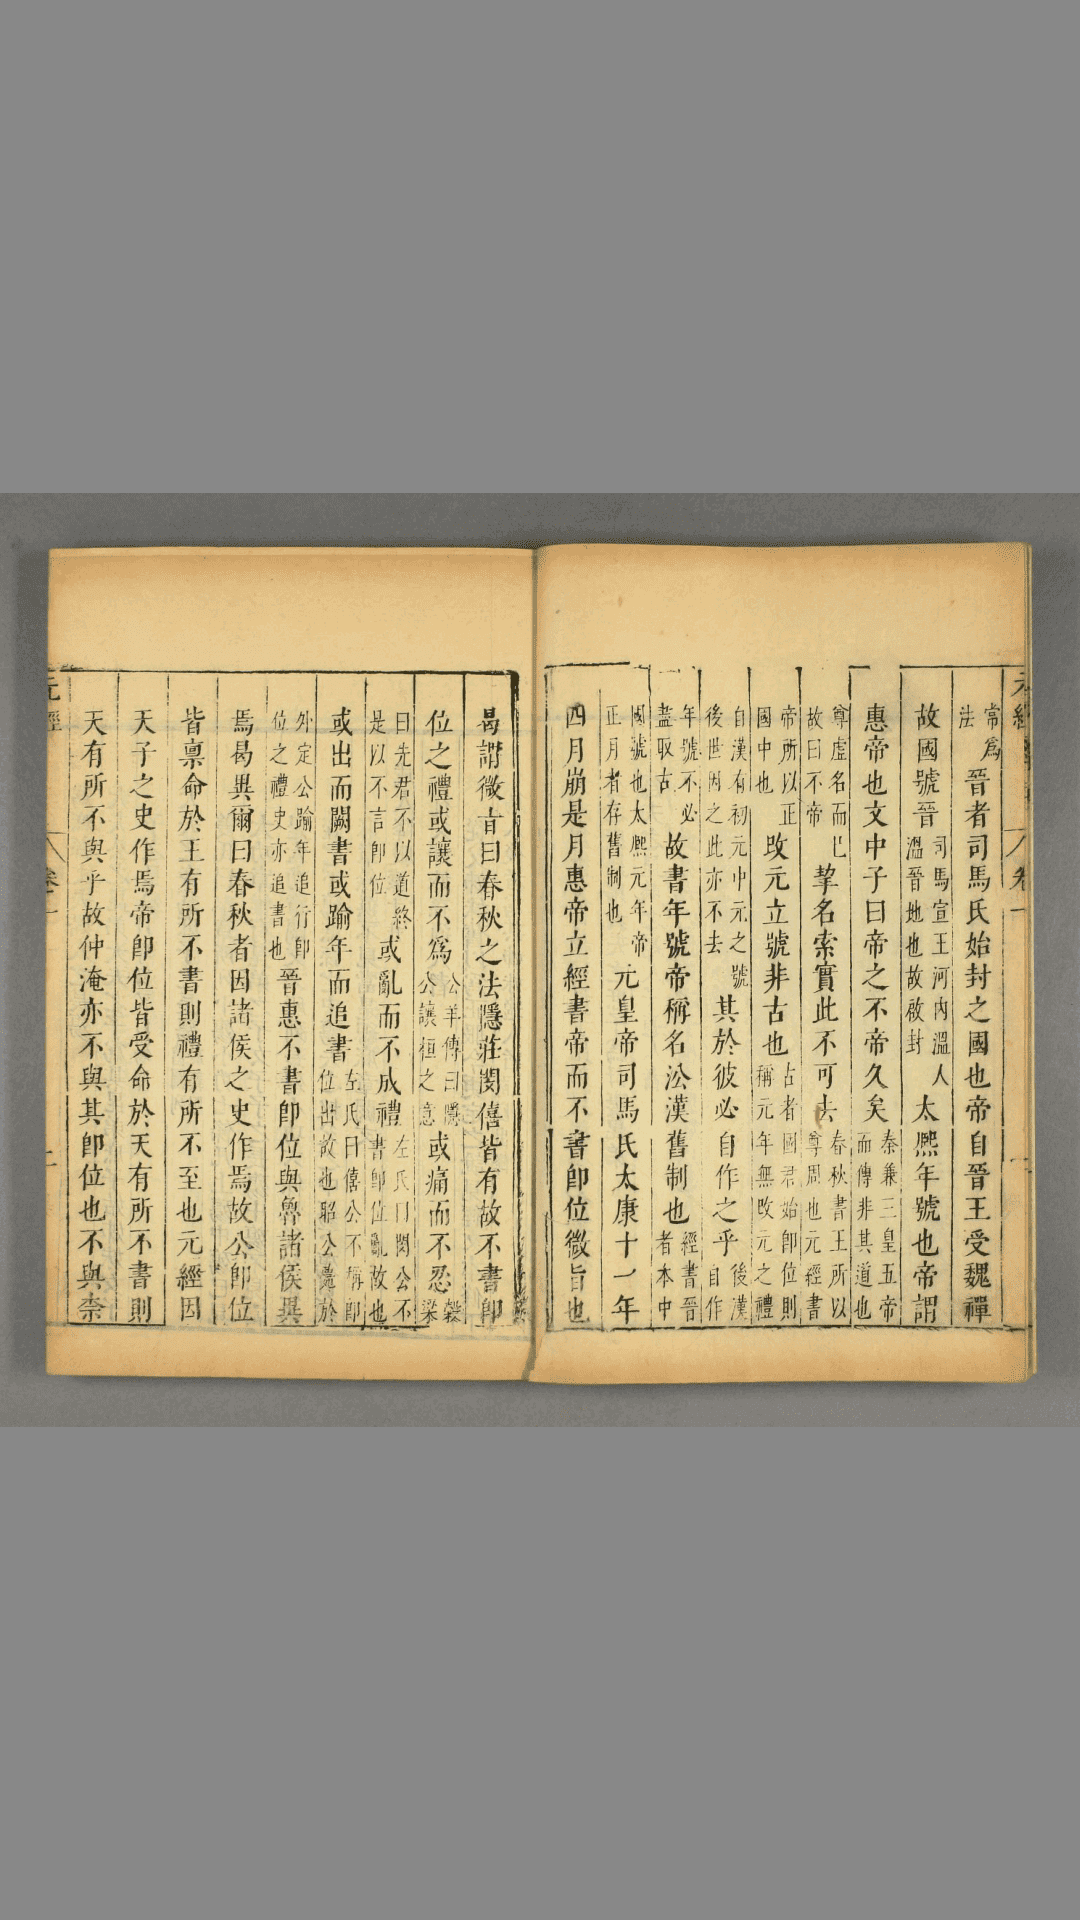 元經
卷一
常爲法晉者司馬氏始封之國也帝自晉王受魏禪
故國號晉司馬宣王河内溫人溫晉地也故啟封太熙年號也帝謂
惠帝也文中子曰帝之不帝久矣秦兼三皇五帝而傳非其道也
尊虛名而已故曰不帝挈名索實此不可去春秋書王所以尊周也元經書
帝所以正國中也改元立號非古也古者國君始卽位則稱元年無改元之禮
自漢有初元中元之號後世因之此亦不去其於彼必自作之乎後漢自作
年號不必盡取古故書年號帝稱名㳂漢舊制也經書晉者本中
國號也太熙元年帝正月者存舊制也元皇帝司馬氏太康十一年
四月崩是月惠帝立經書帝而不書卽位微旨也
曷謂微旨曰春秋之法隱莊閔僖皆有故不書卽
位之禮或讓而不爲公羊傳曰隱公讓桓之意或痛而不忍穀梁
曰先君不以道終是以不言卽位或亂而不成禮左氏曰閔公不書卽位亂故也
或出而闕書或踰年而追書左氏曰僖公不稱卽位出故也昭公薨於
外定公踰年追行卽位之禮史亦追書也晉惠不書卽位與魯諸侯異
焉曷異爾曰春秋者因諸侯之史作焉故公卽位
皆稟命於王有所不書則禮有所不至也元經因
天子之史作焉帝卽位皆受命於天有所不書則
天有所不與乎故仲淹亦不與其卽位也不與柰
元經
卷一
二